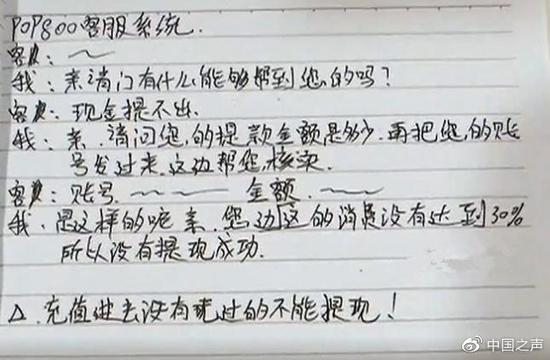 POP800客服系统.
客户:～
我:亲请门有什么能够帮到您的吗?
客户:现金提不出.
我:亲.请问您的提款金额是多少.再把您的账
号发过来.这边帮您核实
客户:账号.～～ 金额.～～
我.是这样的呢亲.您边这的消费没有达到30%
所以没有提现成功.
△.充值进去没有玩过的不能提现!
@中国之声